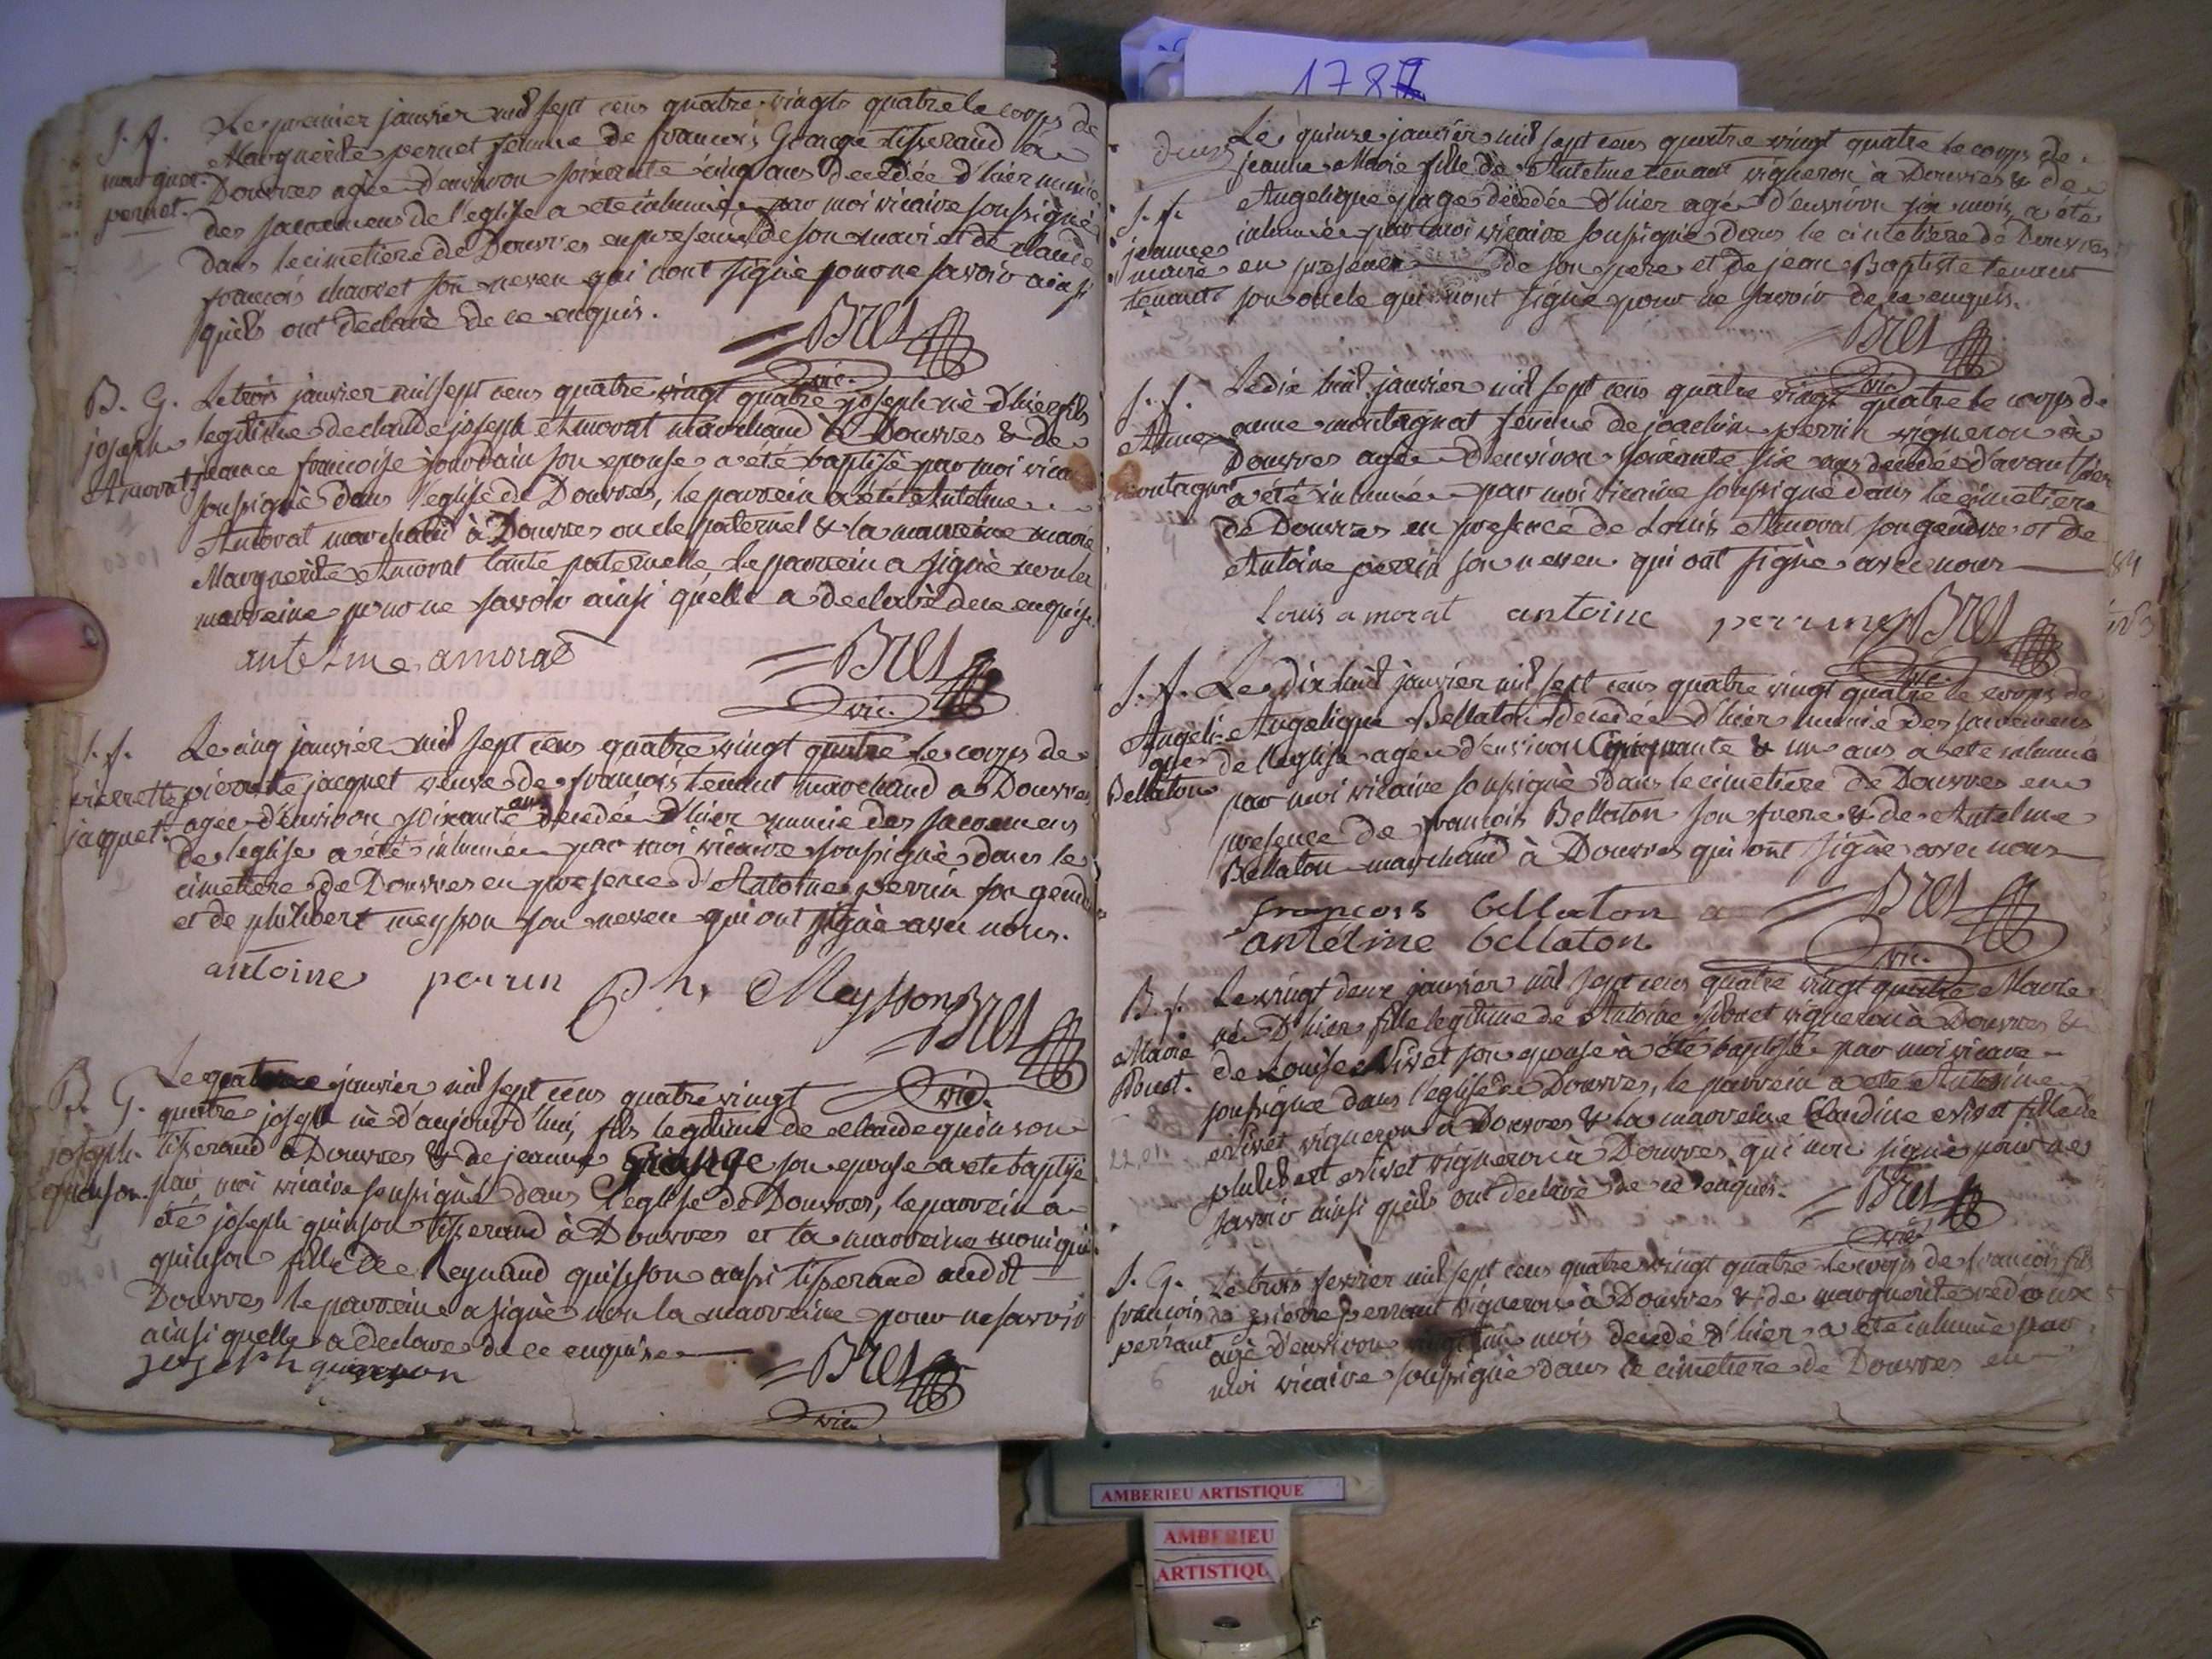 1784
S. f.
marguer.
pernet.
Le premier janvier mil sept cens quatre-vingts quatre le corps de
Marguerite pernet femme de francois Grange tisserand à
Douvres agée d'environ soixante cinq ans decedée d'hier munie
des sacremens de l'eglise a eté inhumée par moi vicaire soussigné
dans le cimetiere de Douvres en presence de son mari et de claude
francois son neveu qui n'ont signé pour ne savoir ainsi
quils ont declaré de ce enquis.
= Bret
vic.
B. G.
joseph
Amorat
Le trois janvier mil sept cens quatre vingt quatre joseph né d'hier fils
legitime de claude joseph Amorat marchand à Douvres & de
jeanne francoise jourdain son epouse a eté baptisé par moi vicaire
soussigné dans l'eglise de Douvres, le parrein a été Antelme
Amorat marchand à Douvres oncle paternel & la marreine marie
Marguerite Amorat tante paternelle, le parrein a signé non la
marreine pour ne savoir ainsi quelle a declaré de ce enquise.
antelme amorat
= Bret
vic.
S. f.
pierrette
jacquet.
Le cinq janvier mil sept cens quatre vingt quatre le corps de
pierrette jacquet veuve de francois tenant marchand a Douvres
agée d'environ soixante ans decedée d'hier munie des sacremens
de l'eglise a été inhumée par moi vicaire soussigné dans le
cimetiere de Douvres en presence d'Antoine perrin son gendre
et de philibert meysson son neveu qui ont signé avec nous.
antoine perrin Ph. Meysson
= Bret
vic.
B. G.
joseph
quinson.
Le quatorze janvier mil sept cens quatre vingt
quatre joseph né d'aujourd'hui, fils legitime de claude quinson
tisserand à Douvres & de jeanne Grange son epouse a eté baptisé
par moi vicaire soussigné dans l'eglise de Douvres, le parrein a
été joseph quinson tisserand à Douvres et la marreine monique
quinson fille de Reynaud quinson aussi tisserand audit
Douvres le parrein a signé non la marreine pour ne savoir
ainsi quelle a declaré de ce enquise
joseph quinson
= Bret
vic.
deux
S. f.
jeanne
marie
tenant
Le quinze janvier mil sept cens quatre vingt quatre le corps de
jeanne Marie fille de Antelme tenant vigneron à Douvres & de
Angelique page decedée d'hier agée d'environ six mois a été
inhumée par moi vicaire soussigné dans le cimetiere de Douvres
en presence de son pere et de jean Baptiste tenant
son oncle qui n'ont signé pour ne savoir de ce enquis.
= Bret
vic.
S. f.
Anne
montagnat
Le dix huit janvier mil sept cens quatre vingt quatre le corps de
anne montagnat femme de joachim perrin vigneron à
Douvres agée d'environ soixante six ans decedée d'avant hier
a été inhumée par moi vicaire soussigné dans le cimetiere
de Douvres en presence de Louis Amorat son gendre et de
Antoine perrin son neveu qui ont signé avec nous
Louis amorat antoine perrin
Bret
vic.
S. f.
Angeli-
que
Bellaton
Le dix huit janvier mil sept cens quatre vingt quatre le corps de
Angelique Bellaton decedée d'hier munie des sacremens
de l'eglise agée d'environ Cinquante & un ans a eté inhumée
par moi vicaire soussigné dans le cimetiere de Douvres en
presence de francois Bellaton son frere & de Antelme
Bellaton marchand à Douvres qui ont signé avec nous
francois bellaton
antelme bellaton
= Bret
vic.
B. f.
Marie
Le vingt deux janvier mil sept cens quatre vingt quatre Marie
né d'hier fille legitime de Antoine vigneron à Douvres &
de Louise son epouse à été baptisée par moi vicaire
soussigné dans l'eglise de Douvres, le parrein a eté
vigneron à Douvres & la marreine Claudine fille de
philibert vigneron à Douvres qui n'ont signé pour ne
savoir ainsi quils ont declaré de ce enquis.
= Bret
vic.
22,01
S. G.
francois
perrant
Le trois fevrier mil sept cens quatre vingt quatre le corps de francois fils
de pierre perrant vigneron à Douvres & de marguerite
agé d'environ mois decedé d'hier a eté inhumé par
moi vicaire soussigné dans le cimetiere de Douvres en
AMBERIEU ARTISTIQUE
AMBERIEU
ARTISTIQU